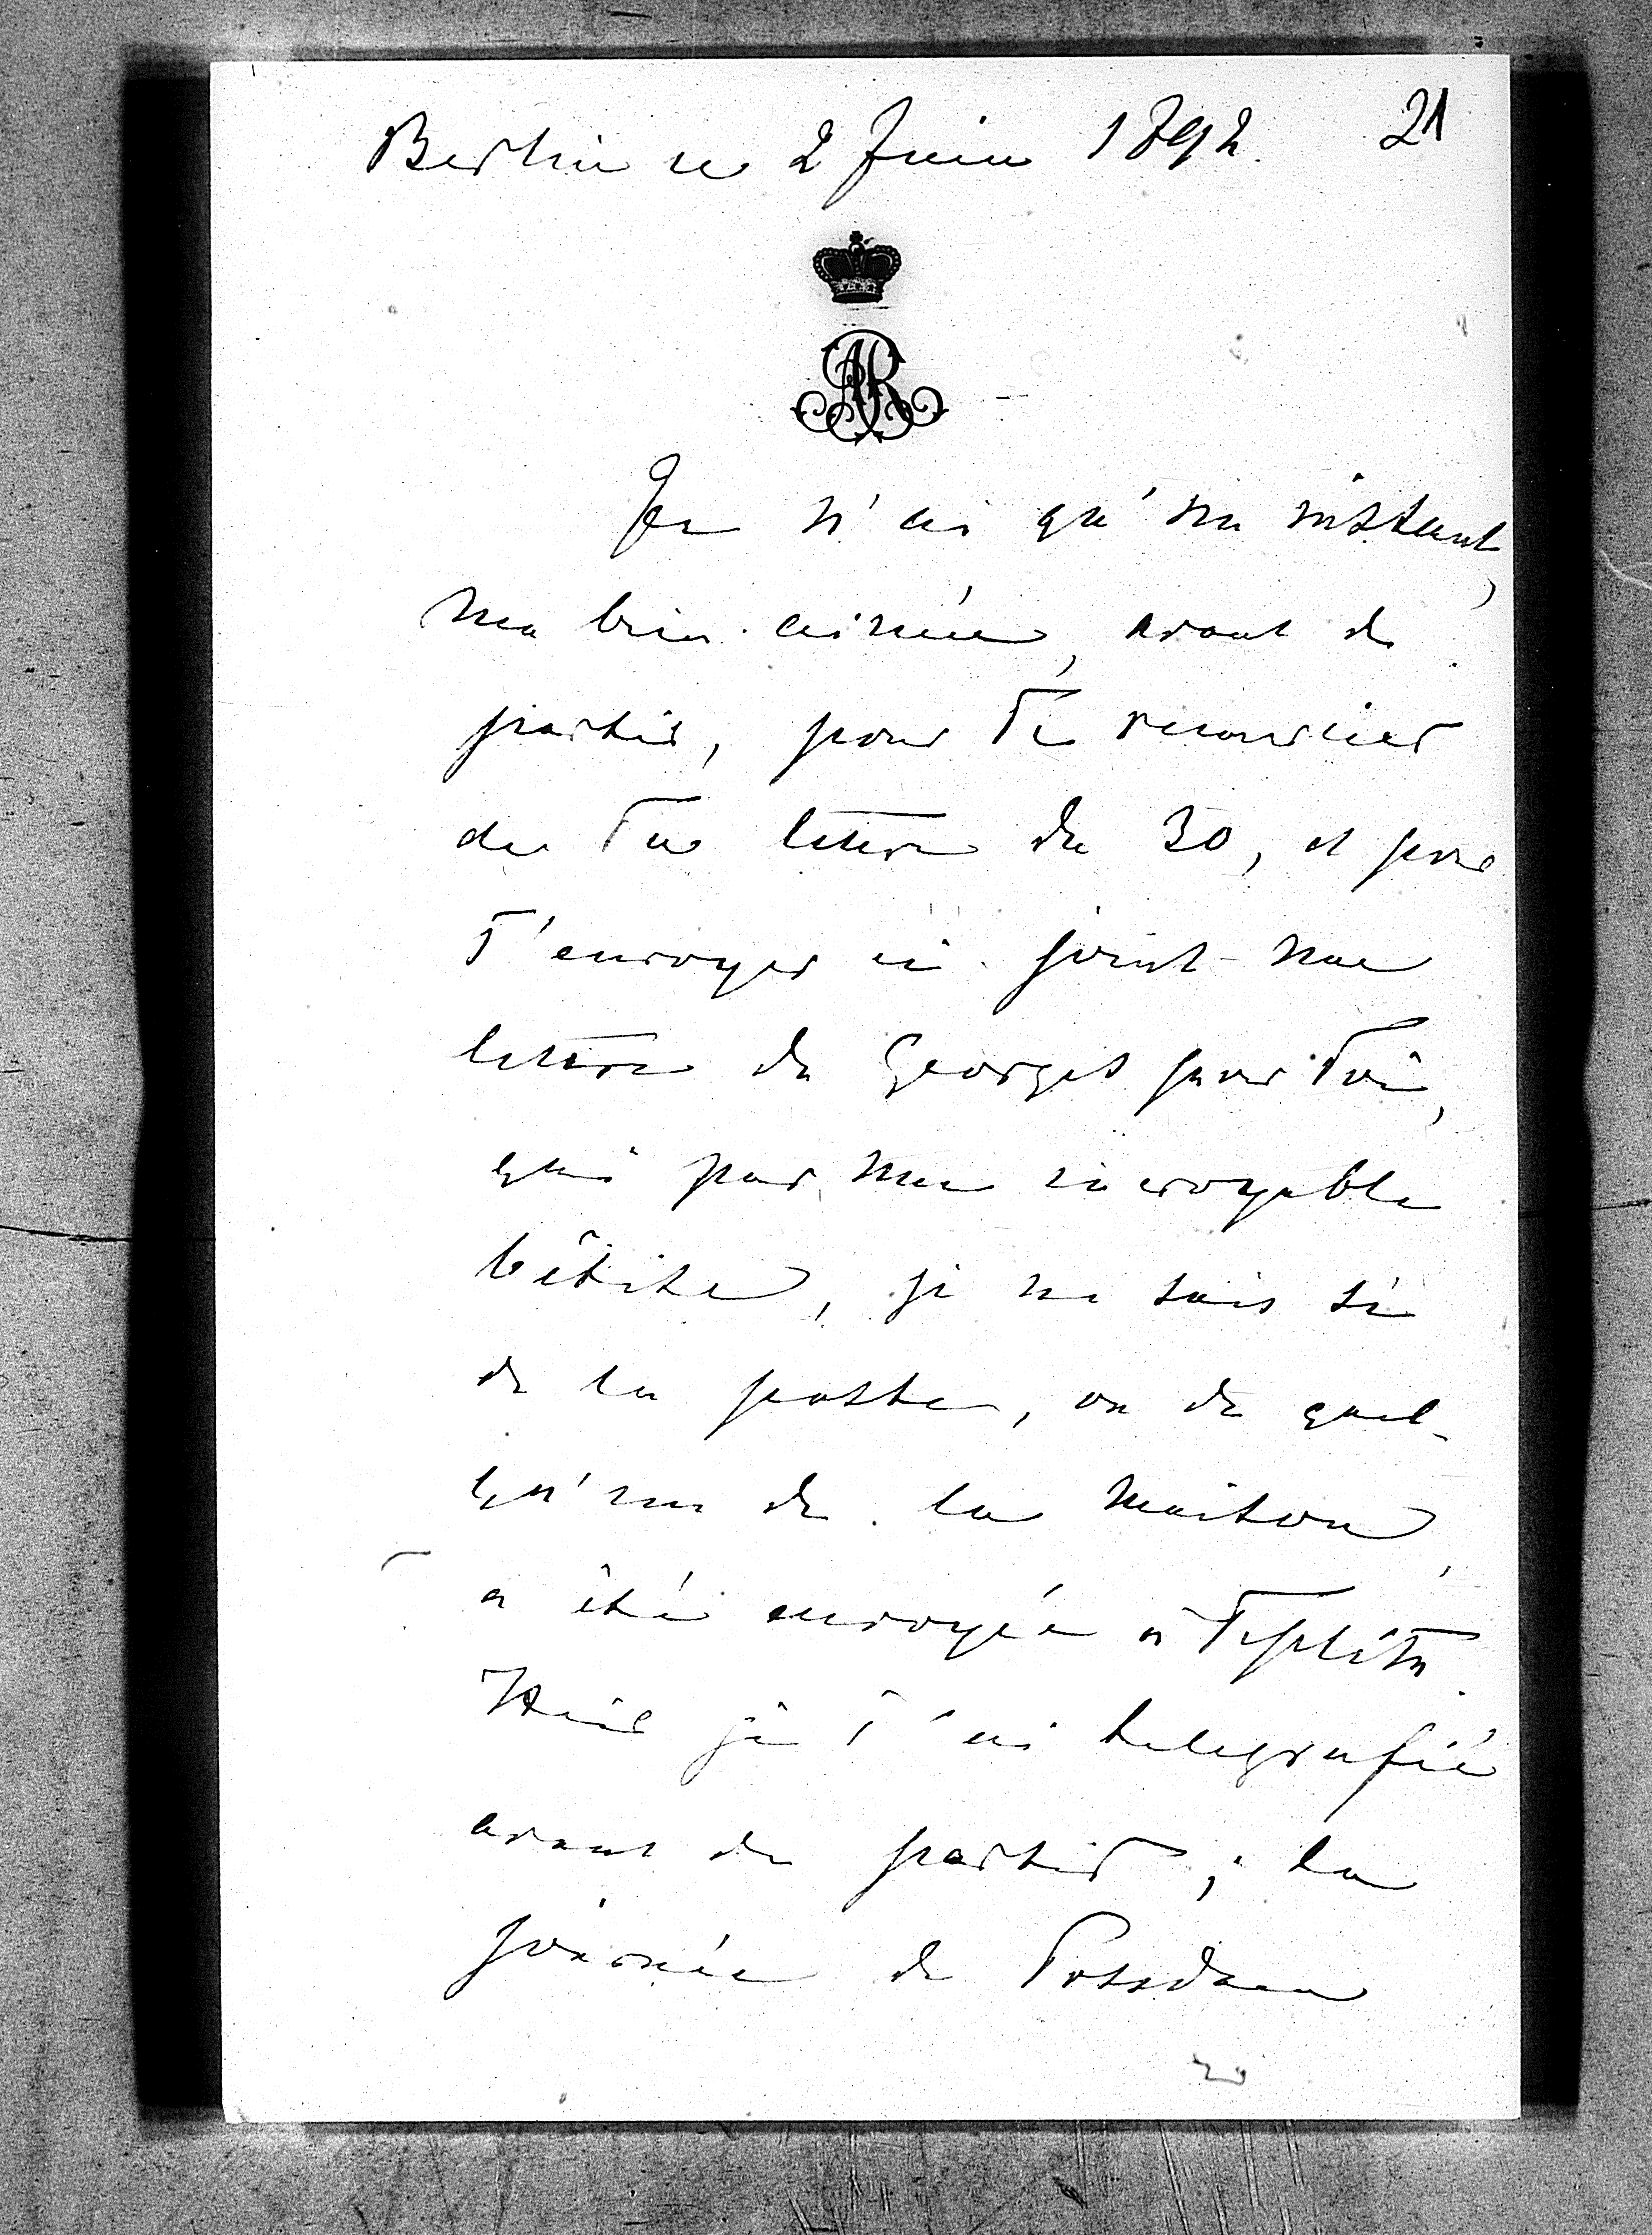 Berlin ce 2 Juin 1892. 21
AR
Je n'ai qu'un instant,
ma bien aimée, avant de
partir, pour Te remercier
de Ta lettre du 30, et pour
T'envoyer ci-joint une
lettre de Georges pour Toi,
qui par une incroyable
bêtise, je ne sais si
de la poste, ou de quel-
qu'un de la maison,
a été envoyée à Teplitz.
Hier je T'ai telegrafié
avant de partir; la
journée de Potsdam